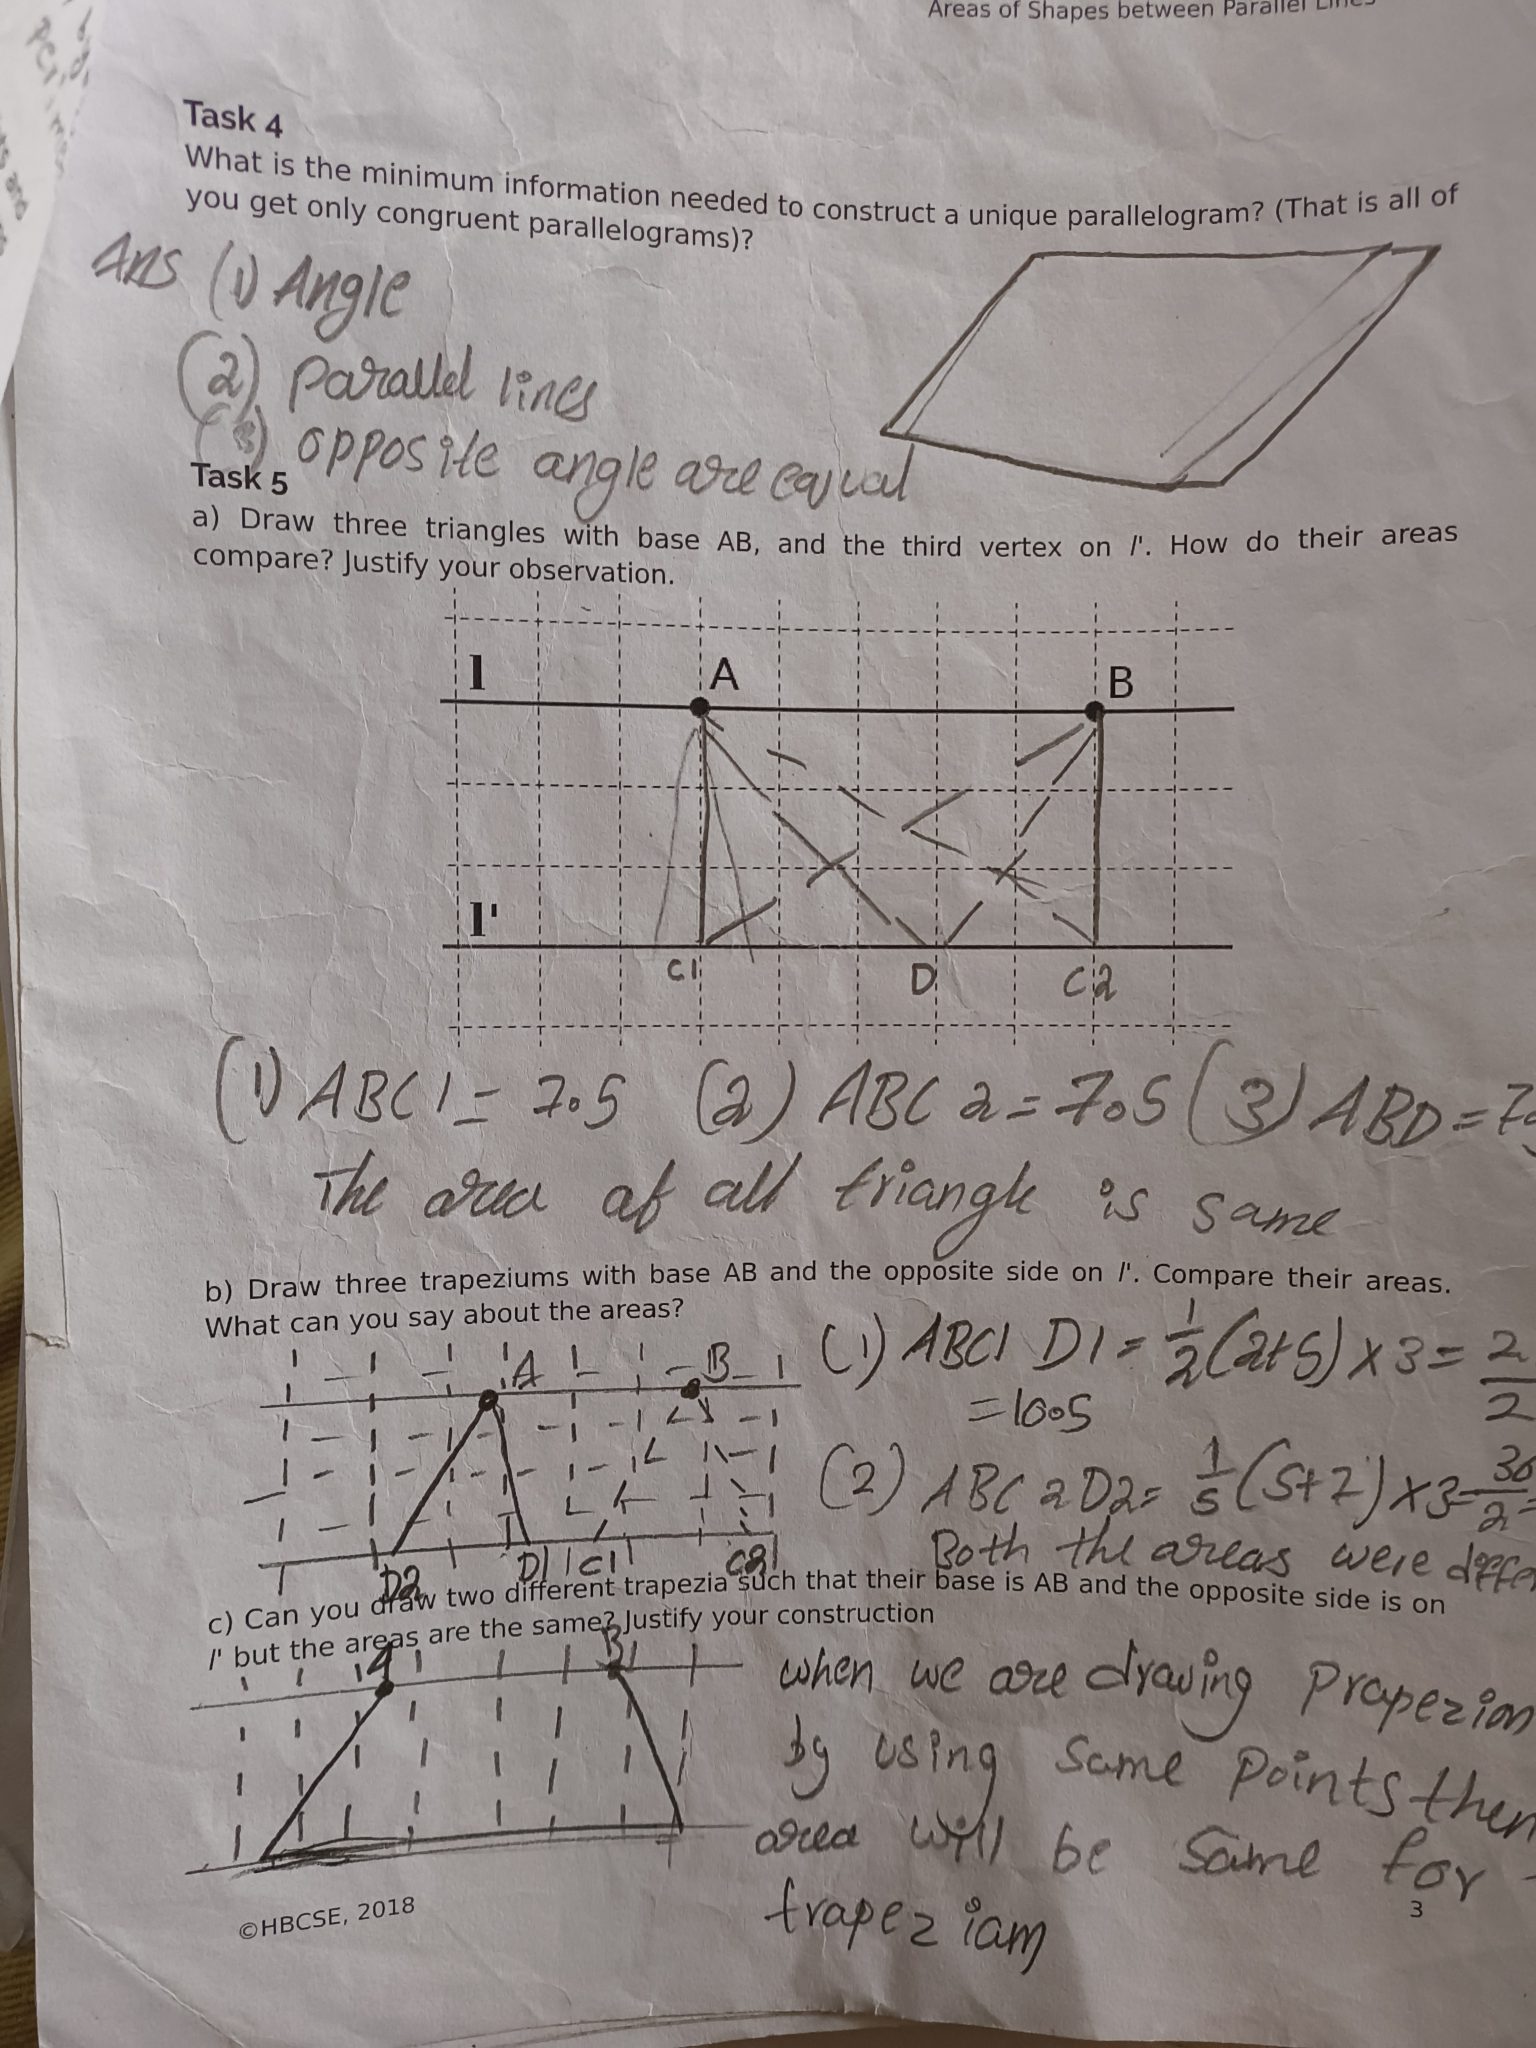 Areas of Shapes between Parallel Lines
Task 4
What is the minimum information needed to construct a unique parallelogram? (That is all of
you get only congruent parallelograms)?
Ans (1) Angle
(2) Parallel lines
(3) opposite angle are equal
Task 5
a) Draw three triangles with base AB, and the third vertex on l'. How do their areas
compare? Justify your observation.
l A B
l'
C1 D C2
(1) ABC1 = 7.5 (2) ABC2 = 7.5 (3) ABD = 7.
The area of all triangle is same
b) Draw three trapeziums with base AB and the opposite side on l'. Compare their areas.
What can you say about the areas?
A B
(1) ABC1 D1 = 1/2 (2+5) x 3 = 2 / 2
= 10.5
(2) ABC2D2 = 1/5 (5+7) x 3 = 36/2 =
Both the areas were diffe
D2 D1 C1 C2
c) Can you draw two different trapezia such that their base is AB and the opposite side is on
l' but the areas are the same? Justify your construction
A B
when we are drawing Prapezion
by using same points then
area will be same for
trapeziam
©HBCSE, 2018
3